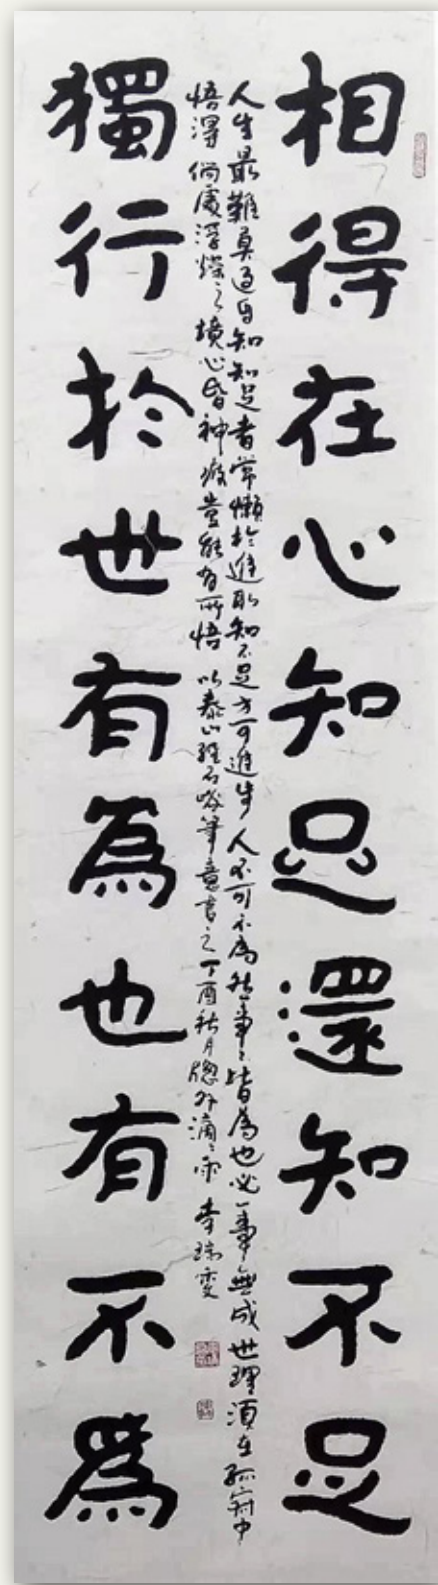 相得在心知足還知不足
人生最難莫過自知知足者常懶於進取知不足方可進步人不可不為然事〻皆為也必一事無成世理須在孤寂中
悟得倘處浮燥之境心昏神疲豈能有所悟以泰山經石峪筆意書之丁酉秋月窗外滴〻雨李瑞
獨行於世有為也有不為